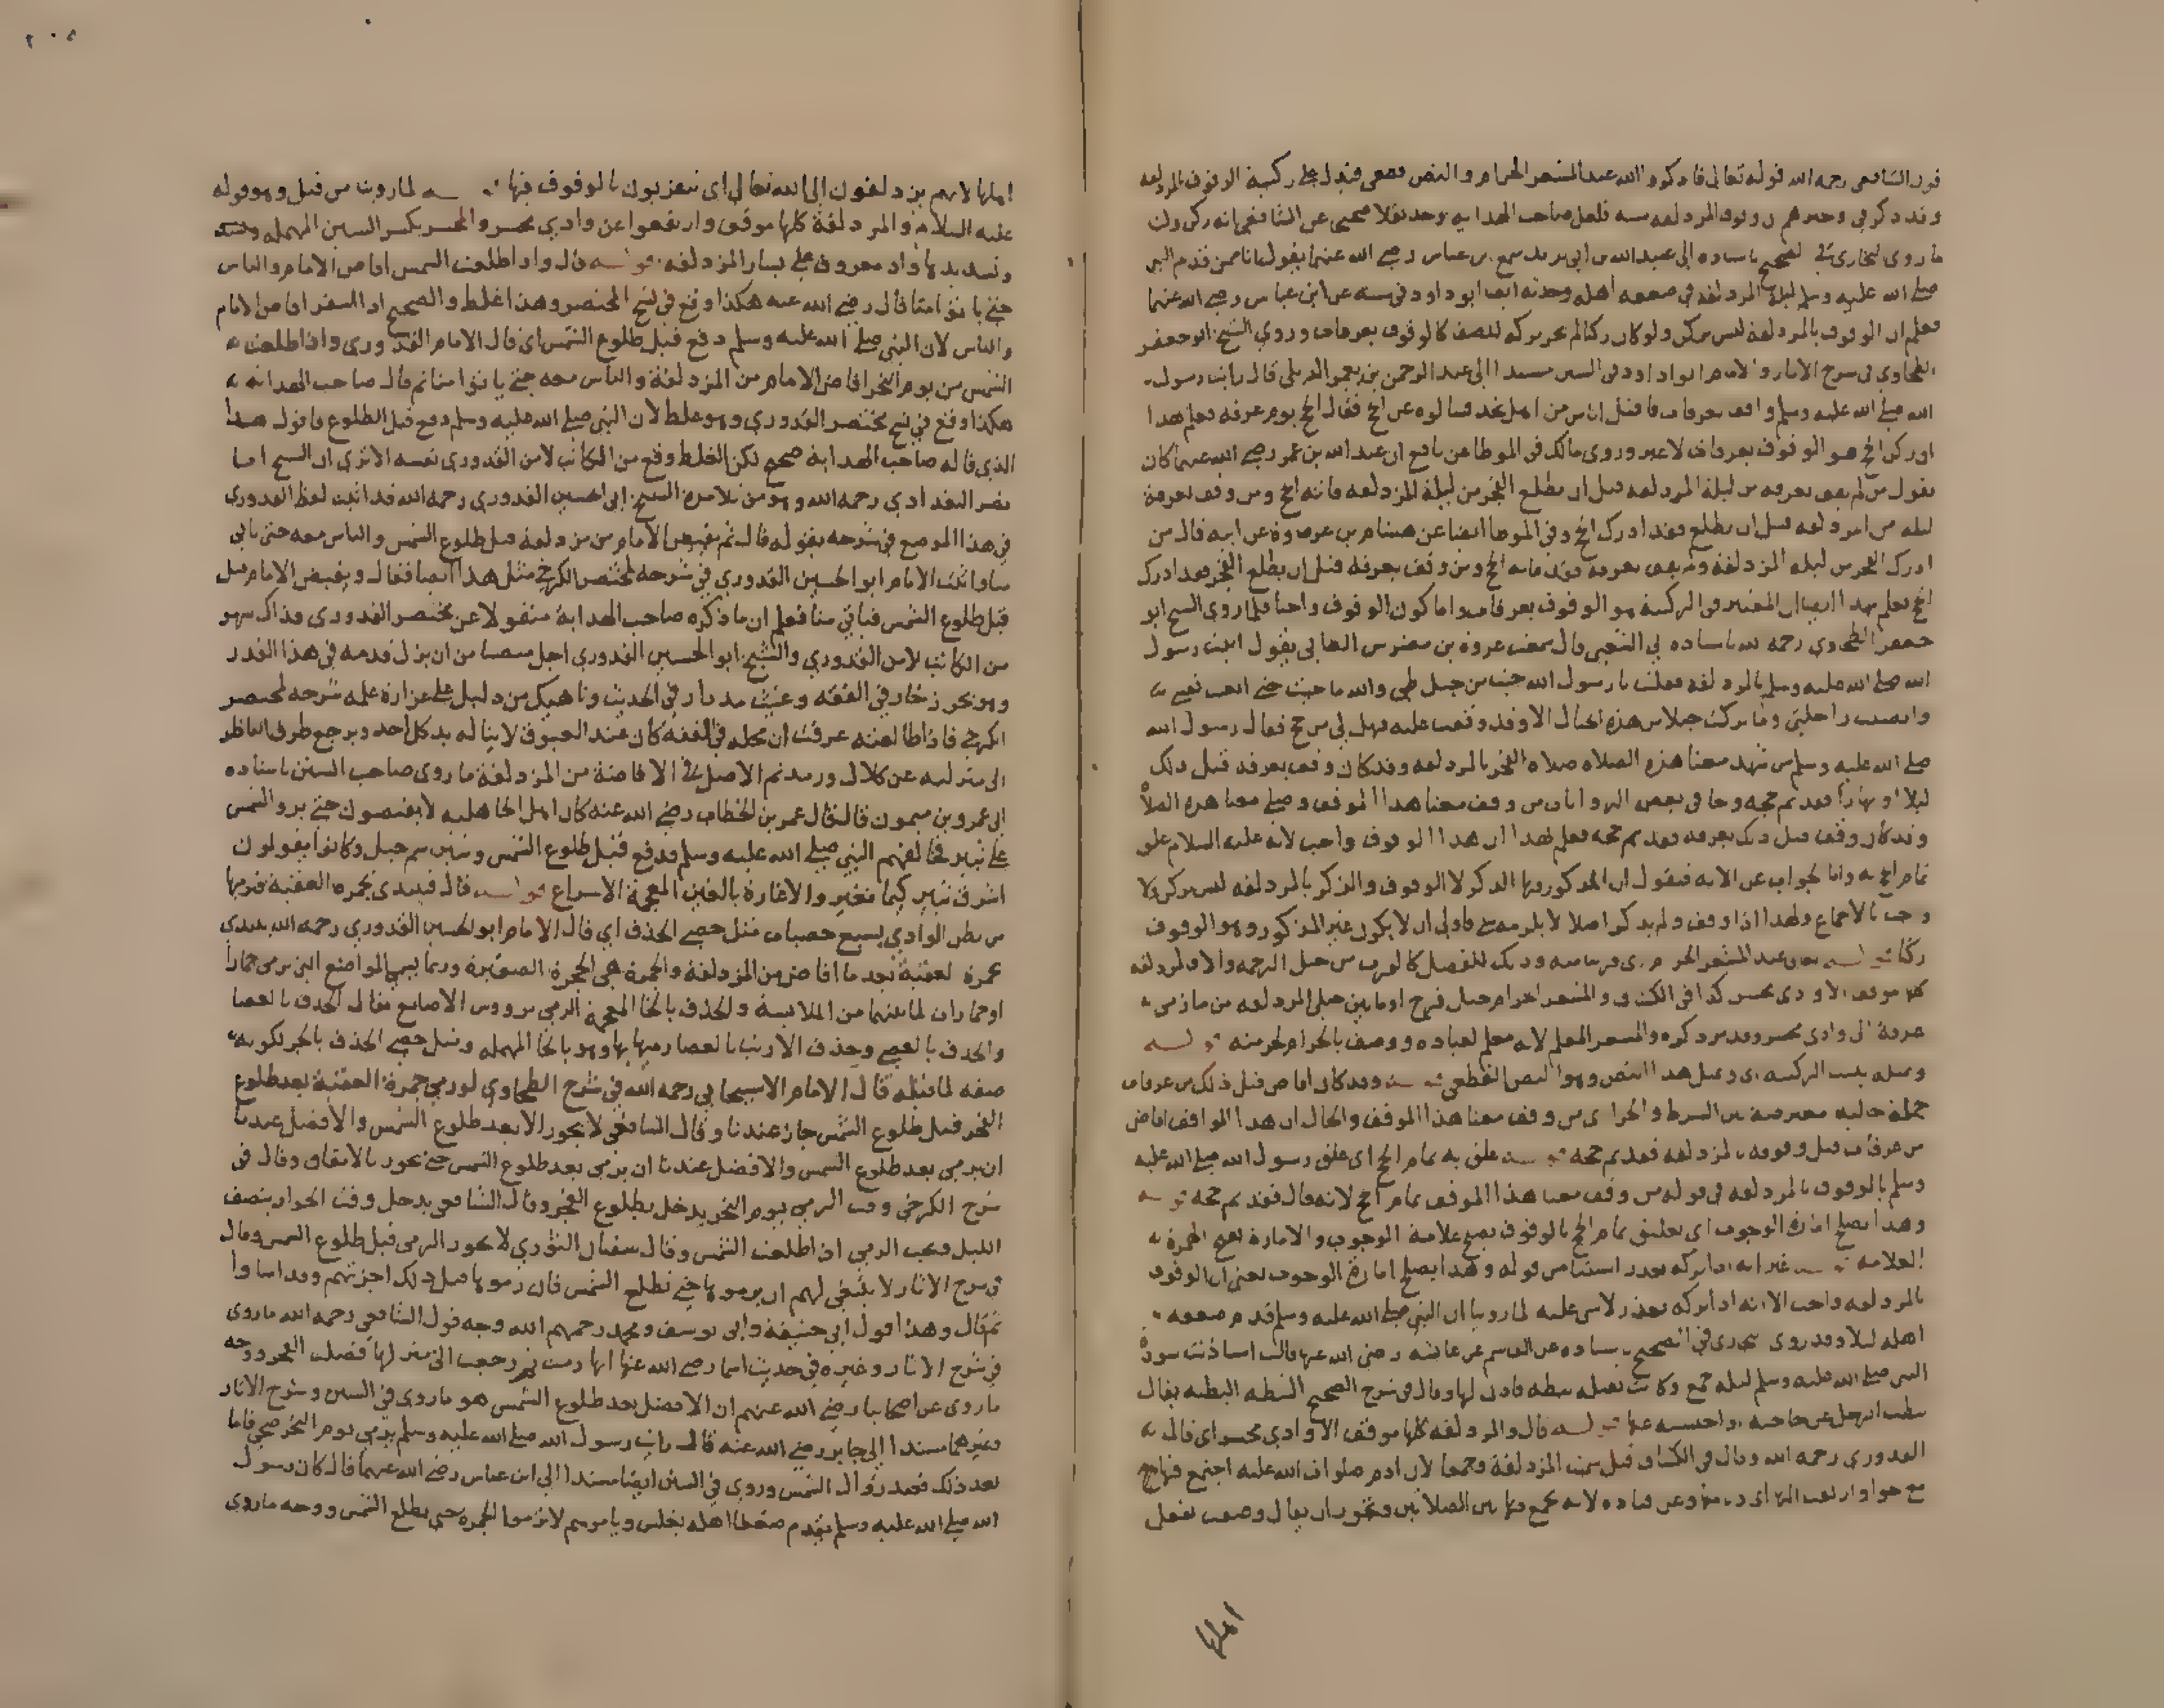 قول الشافعي رحمه الله قوله تعالى فاذكروا الله عند المشعر الحرام والنص
وقد ذكر في المزدلفة سنة صاحب الهداية عن الشافعي انه ركن
ما روى البخاري في الصحيح باسناده الى عبيد الله بن ابي يزيد سمع ابن عباس رضي الله عنهما يقول انا ممن قدم النبي
صلى الله عليه وسلم ليلة المزدلفة في ضعفة اهله وحدث ابو داود في سننه عن ابن عباس رضي الله عنهما
فعلم ان الوقوف بالمزدلفة ليس بركن ولو كان ركنا لم يجز تركه للضعف كالوقوف بعرفات وروي الشيخ ابو جعفر
الطحاوي في شرح الاثار وابو داود في السنن مسندا الى عبد الرحمن بن يعمر الديلي قال رايت رسول
الله صلى الله عليه وسلم واقفا بعرفات فاقبل اناس من اهل نجد فسالوه عن الحج فقال الحج يوم عرفة فعلم بهذا
ان ركن الحج هو الوقوف بعرفات لا غير وروى مالك في الموطا عن نافع ان عبد الله بن عمر رضي الله عنهما كان
يقول من لم يقف بعرفة من ليلة المزدلفة قبل ان يطلع الفجر من ليلة المزدلفة فاته الحج ومن وقف بعرفة
ليلة من المزدلفة قبل ان يطلع فقد ادرك الحج وفي الموطا ايضا عن هشام بن عروة عن ابيه قال من
ادرك الفجر من ليلة المزدلفة ولم يقف بعرفة فقد فاته الحج ومن وقف بعرفة قبل ان يطلع الفجر فقد ادرك
الحج فعلم بهذا ان المعتبر في الركنية هو الوقوف بعرفات واما كون الوقوف واجبا فلما روى الشيخ ابو
جعفر الطحاوي رحمه الله باسناده الى الشعبي قال سمعت عروة بن مضرس الطائي يقول اتيت رسول
الله صلى الله عليه وسلم بالمزدلفة فقلت يا رسول الله جئت من جبل طي والله ما جئت حتى اتعبت نفسي
وانصبت راحلتي وما تركت جبلا من هذه الجبال الا وقد وقفت عليه فهل لي من حج فقال رسول الله
صلى الله عليه وسلم من شهد معنا هذه الصلاة صلاة الفجر بالمزدلفة وقد كان وقف بعرفة قبل ذلك
ليلا او نهارا فقد تم حجه وجا في بعض الروايات من وقف معنا هذا الموقف وصلى معنا هذه الصلاة
وقد كان وقف قبل ذلك بعرفة فقد تم حجه فعلم بهذا ان هذا الوقوف واجب لانه عليه السلام علق
تمام الحج به واما الجواب عن الاية فنقول ان المذكور فيها الذكر لا الوقوف والذكر بالمزدلفة ليس بركن ولا
واجب بالاجماع ولهذا اذا وقف ولم يذكر اصلا لا يلزمه شي فاولى ان لا يكون غير المذكور وهو الوقوف
ركنا قوله عند المشعر الحرام
كلها موقف الا وادي محسر كذا في الكشاف والمشعر الحرام جبل قزح او ما بين جبلي المزدلفة من مازمي
عرفة الى وادي محسر وقد مر ذكره والمشعر المعلم لانه معلم لعبادة ووصف بالحرام لحرمته قوله
وبمثله يثبت الركنية اى وبمثل هذا النص وهو النص القطعي قوله وقد كان افاض قبل ذلك من عرفات
جملة حالية معترضة بين الشرط والجزا اى من وقف معنا هذا الموقف والحال ان هذا الواقف افاض
من عرفات قبل وقوفه بالمزدلفة فقد تم حجه قوله علق به تمام الحج اى علق رسول الله صلى الله عليه
وسلم بالوقوف بالمزدلفة في قوله من وقف معنا هذا الموقف تمام الحج لانه قال فقد تم حجه قوله
وهذا يصلح امارة الوجوب اى تعليق تمام الحج بالوقوف يصلح علامة الوجوب والامارة بفتح الهمزة
العلامة قوله غير انه اذا تركه بعذر استثنا من قوله وهذا يصلح امارة الوجوب يعني ان الوقوف
بالمزدلفة واجب الا انه اذا تركه بعذر لا شي عليه لما روينا ان النبي صلى الله عليه وسلم قدم ضعفة
اهله ليلا وقد روى البخاري في الصحيح باسناده عن القاسم عن عائشة رضي الله عنها قالت استاذنت سودة
النبي صلى الله عليه وسلم ليلة جمع وكانت ثقيلة ثبطة فاذن لها وقال في شرح الصحيح الثبطة البطيئة يقال
ثبطت الرجل عن حاجته اذا حبسته عنها قوله قال والمزدلفة كلها موقف الا وادي محسر اى قال
القدوري رحمه الله وقال في الكشاف قيل سميت المزدلفة وجمعا لان ادم صلوات الله عليه اجتمع فيها
مع حوا وازدلف اليها اى دنا منها وعن قتادة لانه يجمع فيها بين الصلاتين ويجوز ان يقال وصفت بفعل
اهلها
اهلها لانهم يزدلفون الى الله تعالى اى يتقربون بالوقوف فيها قوله لما روينا من قبل وهو قوله
عليه السلام والمزدلفة كلها موقف وارتفعوا عن وادي محسر والمحسر بكسر السين المهملة
وتشديدها واد معروف على يسار المزدلفة قوله قال واذا طلعت الشمس افاض الامام والناس
حتى ياتوا منا قال رضي الله عنه هكذا وقع في نسخ المختصر وهذا غلط والصحيح اذا اسفر افاض الامام
والناس لان النبي صلى الله عليه وسلم دفع قبل طلوع الشمس اى قال الامام القدوري واذا طلعت
الشمس من يوم النحر افاض الامام من المزدلفة والناس معه حتى ياتوا منا ثم قال صاحب الهداية
هكذا وقع في نسخ مختصر القدوري وهو غلط لان النبي صلى الله عليه وسلم دفع قبل الطلوع فاقول هذا
الذي قاله صاحب الهداية صحيح لكن الغلط وقع من الكاتب لا من القدوري نفسه الا ترى ان الشيخ ابا
نصر البغدادي رحمه الله وهو من تلامذة الشيخ ابي الحسين القدوري رحمه الله قد اثبت لفظ القدوري
في هذا الموضع في شرحه بقوله قال ثم يفيض الامام من مزدلفة قبل طلوع الشمس والناس معه حتى ياتي
منا واثبت الامام ابو الحسين القدوري في شرحه لمختصر الكرخي مثل هذا ايضا فقال ويفيض الامام قبل
قبل طلوع الشمس فياتي منا فعلم ان ما ذكره صاحب الهداية منقولا عن مختصر القدوري فذاك سهو
من الكاتب لا من القدوري والشيخ ابو الحسين القدوري اجل منصبا من ان يزل قدمه في هذا القدر
وهو بحر زخار في الفقه وغيث مدرار في الحديث وناهيك من دليل على غزارة علمه شرحه لمختصر
الكرخي فاذا طالعته عرفت ان محله في الفقه كان عند العيوق لا يناله يد كل احد ويرجع طرف الناظر
الى منزلته عن كلال ورمد ثم الاصل في الافاضة من المزدلفة ما روى صاحب السنن باسناده
الى عمرو بن ميمون قال قال عمر بن الخطاب رضي الله عنه كان اهل الجاهلية لا يفيضون حتى يروا الشمس
على ثبير فخالفهم النبي صلى الله عليه وسلم فدفع قبل طلوع الشمس وثبير اسم جبل وكانوا يقولون
اشرق ثبير كيما نغير والاغارة بالغين المعجمة الاسراع قوله قال فيبتدى بجمرة العقبة فيرميها
من بطن الوادي بسبع حصيات مثل حصى الخذف اي قال الامام ابو الحسين القدوري رحمه الله يبتدي
بجمرة العقبة بعد ما افاض من المزدلفة والجمرة هي الحجرة الصغيرة وربما يسمى المواضع التي ترمى جمارا
او جمرات لما بينهما من الملابسة والخذف بالخا المعجمة الرمي بروس الاصابع يقال الخذف بالحصا
والحذف بالعصى وحذف الارنب بالعصا رميها بها وهو بالحا المهملة ومثل حصى الخذف بالجر لكونه
صفة لما قبله قال الامام الاسبيجابي رحمه الله في شرح الطحاوي لو رمى جمرة العقبة بعد طلوع
الفجر قبل طلوع الشمس جاز عندنا وقال الشافعي لا يجوز الا بعد طلوع الشمس والافضل عندنا
ان يرمي بعد طلوع الشمس والافضل عندنا ان يرمي بعد طلوع الشمس حتى يجوز بالاتفاق وقال في
شرح الكرخي وقت الرمي يوم النحر يدخل بطلوع الفجر وقال الشافعي يدخل وقت الجواز بنصف
الليل ويجب الرمي اذا طلعت الشمس وقال سفيان الثوري لا يجوز الرمي قبل طلوع الشمس وقال
في شرح الاثار لا ينبغي لهم ان يرموها حتى تطلع الشمس فان رموها قبل ذلك اجزتهم وقد اساوا
ثم قال وهذا قول ابي حنيفة وابي يوسف ومحمد رحمهم الله وجه قول الشافعي رحمه الله ما روى
في شرح الاثار وغيره في حديث اسما رضي الله عنها انها رمت ثم رجعت الى منزلها فصلت الفجر ووجه
ما روى عن اصحابنا رضي الله عنهم ان الافضل بعد طلوع الشمس هو ما روى في السنن وشرح الاثار
وغيرهما مسندا الى جابر رضي الله عنه قال رايت رسول الله صلى الله عليه وسلم يرمي يوم النحر ضحى فاما
بعد ذلك فبعد زوال الشمس وروى في السنن ايضا مسندا الى ابن عباس رضي الله عنهما قال كان رسول
الله صلى الله عليه وسلم يقدم ضعفا اهله بغلس ويامرهم لا يرموا الجمرة حتى تطلع الشمس ووجه ما روى